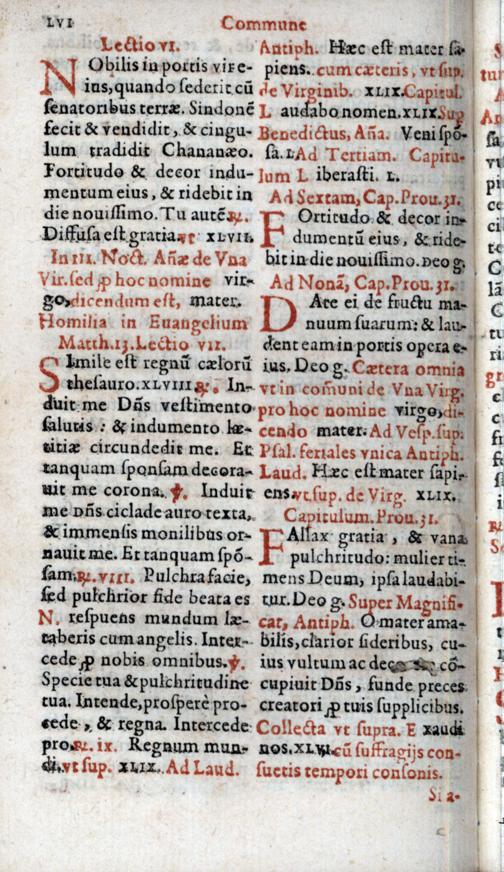 LVI
Commune
Lectio vi.
NObilis in portis vir e-
ius, quando sederit cũ
senatoribus terræ. Sindonẽ
fecit & vendidit, & cingu-
lum tradidit Chananæo.
Fortitudo & decor indu-
mentum eius, & ridebit in
die nouissimo. Tu autẽ ℟.
Diffusa est gratia. vt XLVII.
In III. Noct. Añæ de Vna
Vir. sed ꝓ hoc nomine vir-
go, dicendum est, mater.
Homilia in Euangelium
Matth. 13. Lectio VII.
SImile est regnũ cælorũ
thesauro. XLVIII ℟. In-
duit me Dñs vestimento
salutis : & indumento læ-
titiæ circundedit me. Et
tanquam sponsam decora-
uit me corona. ℣. Induit
me Dñs ciclade auro texta,
& immensis monilibus or-
nauit me. Et tanquam spõ-
sam. ℟. VIII. Pulchra facie,
sed pulchrior fide beata es
N. respuens mundum læ-
taberis cum angelis. Inter-
cede ꝓ nobis omnibus. ℣.
Specie tua & pulchritudine
tua. Intende, prosperè pro-
cede, & regna. Intercede
pro. ℟. ix. Regnum mun-
di. vt sup. XLIX. Ad Laud.
Antiph. Hæc est mater sa-
piens. cum cæteris, vt sup.
de Virginib. XLIX. Capitul.
L audabo nomen. XLIX. Sup
Benedictus, Aña. Veni spõ-
sa. L Ad Tertiam. Capitu-
lum L iberasti. L.
Ad Sextam, Cap. Prou. 31.
FOrtitudo & decor in-
dumentũ eius, & ride-
bit in die nouissimo. Deo g.
Ad Nonã, Cap. Prou. 31.
DAte ei de fructu ma-
nuum suarum: & lau-
dent eam in portis opera e-
ius. Deo g. Cætera omnia
vt in cõmuni de Vna Virg.
pro hoc nomine virgo, di-
cendo mater. Ad Vesp. sup.
Psal. feriales vnica Antiph.
Laud. Hæc est mater sapi-
ens. vt sup. de Virg. XLIX.
Capitulum. Prou. 31.
FAllax gratia, & vana
pulchritudo: mulier ti-
mens Deum, ipsa laudabi-
tur. Deo g. Super Magnifi-
cat, Antiph. O mater ama-
bilis, clarior sideribus, cu-
ius vultum ac cõ-
cupiuit Dñs, funde preces
creatori ꝓ tuis supplicibus.
Collecta vt supra. E xaudi
nos. cũ suffragijs con-
suetis tempori consonis.
Si a-